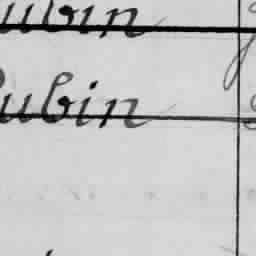 ubin
Rubin